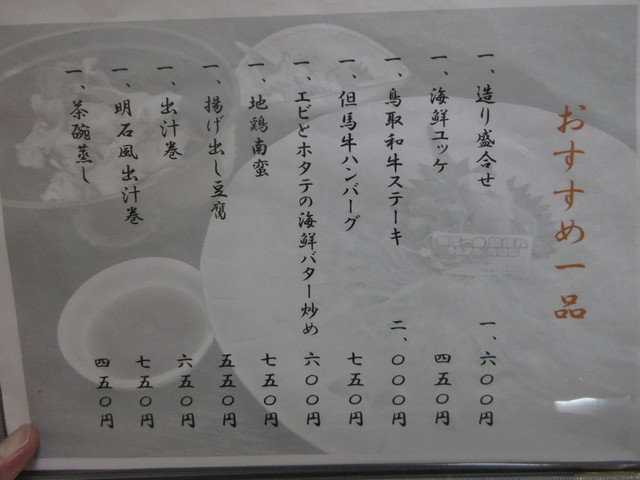 おすすめ一品
一、造り盛合せ 一、六〇〇円
一、海鮮ユッケ 四五〇円
一、鳥取和牛ステーキ 二、〇〇〇円
一、但馬牛ハンバーグ 七五〇円
一、エビとホタテの海鮮バター炒め 六〇〇円
一、地鶏南蛮 七五〇円
一、揚げ出し豆腐 五五〇円
一、出汁巻 六五〇円
一、明石風出汁巻 七五〇円
一、茶碗蒸し 四五〇円